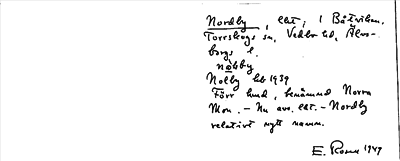 Nordby, lht, i Båtviken,
Torrskogs sn, Vedbo hd, Älvs-
borgs l.
nòlby
Nolby hb 1939
Förr hmd, benämnd Norra
Mon. – Nu avs. lht. – Nordby
relativt nytt namn.
E. Rosen 1949